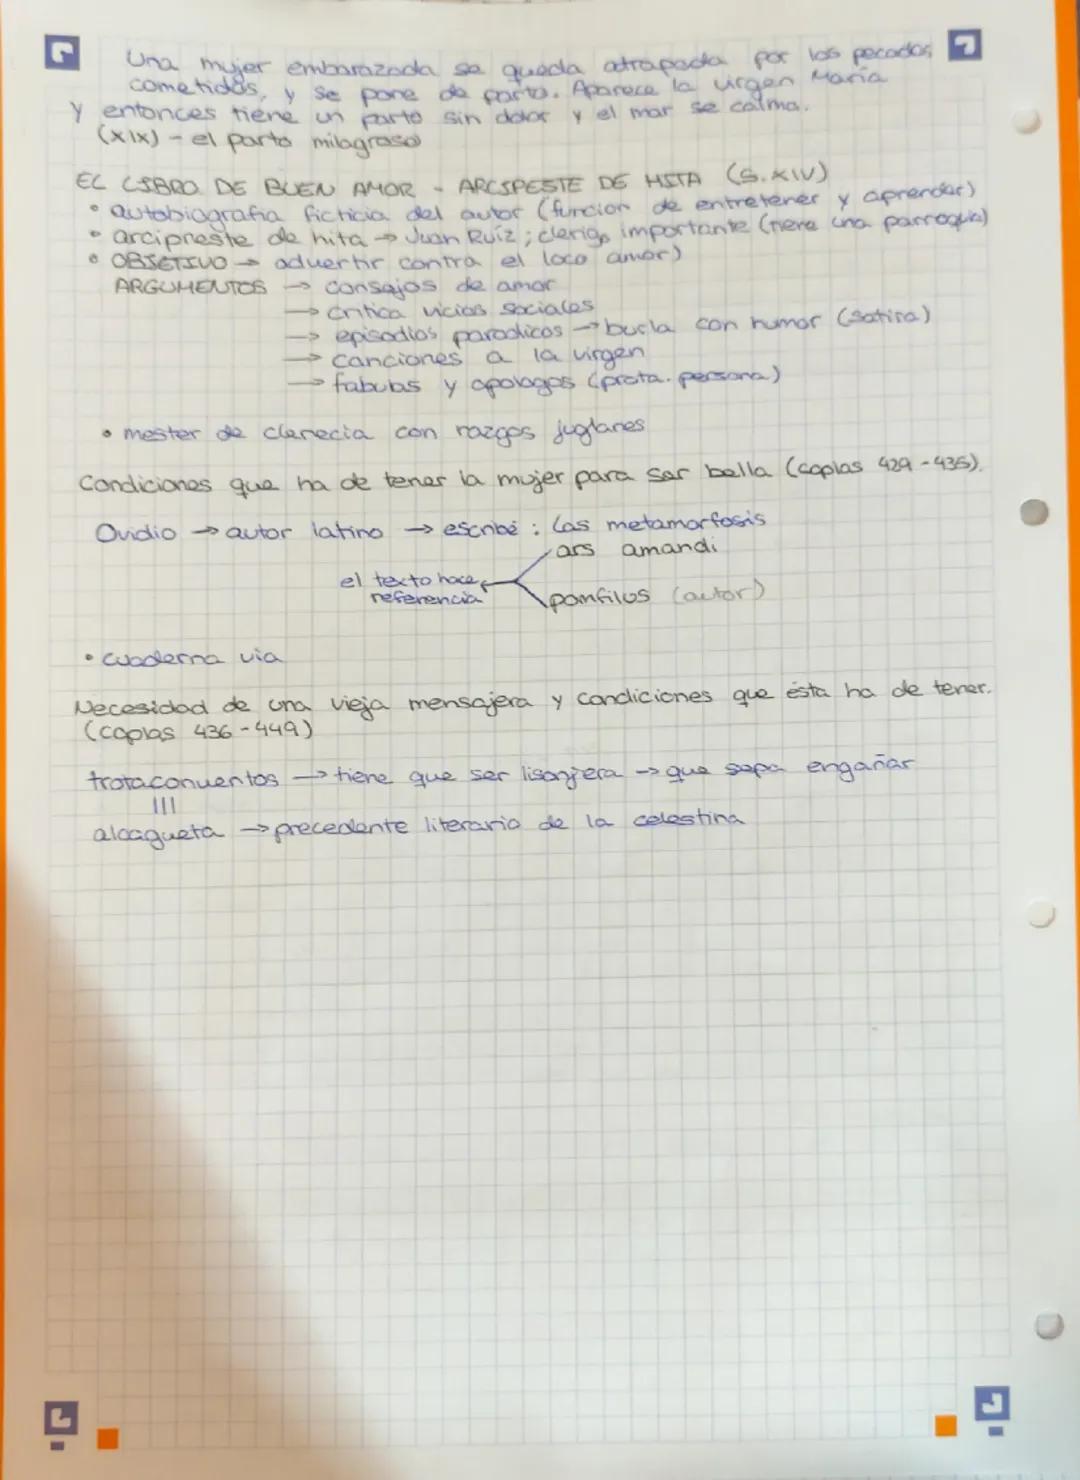 Una mujer embarazada se queda atrapada por los pecados
cometidos, y se pone de parto. Aparece la virgen María
y entonces tiene un parto sin dolor y el mar se calma.
(XIX) - el parto milagroso
EL LIBRO DE BUEN AMOR - ARCIPESTE DE HITA (S.XIV)
• autobiografia ficticia del autor (funcion de entretener y aprender)
• arcipreste de hita → Juan Ruíz ; clerigo importante (tiene una parroquia)
• OBJETIVO → advertir contra el loco amor)
ARGUMENTOS → consejos de amor
→ critica vicios sociales
→ episodios parodicos → burla con humor (satira)
→ canciones a la virgen
→ fabulas y apologos (prota. persona)
• mester de clerecia con razgos juglares
Condiciones que ha de tener la mujer para ser bella (coplas 429 - 435).
Ovidio → autor latino → escribe : Las metamorfosis
ars amandi
el texto hace
referencia
pamfilus (autor)
• cuaderna via
Necesidad de una vieja mensajera y condiciones que ésta ha de tener.
(coplas 436 - 449)
trotaconventos → tiene que ser lisonjera → que sepa engañar
|||
alcagueta → precedente literario de la celestina